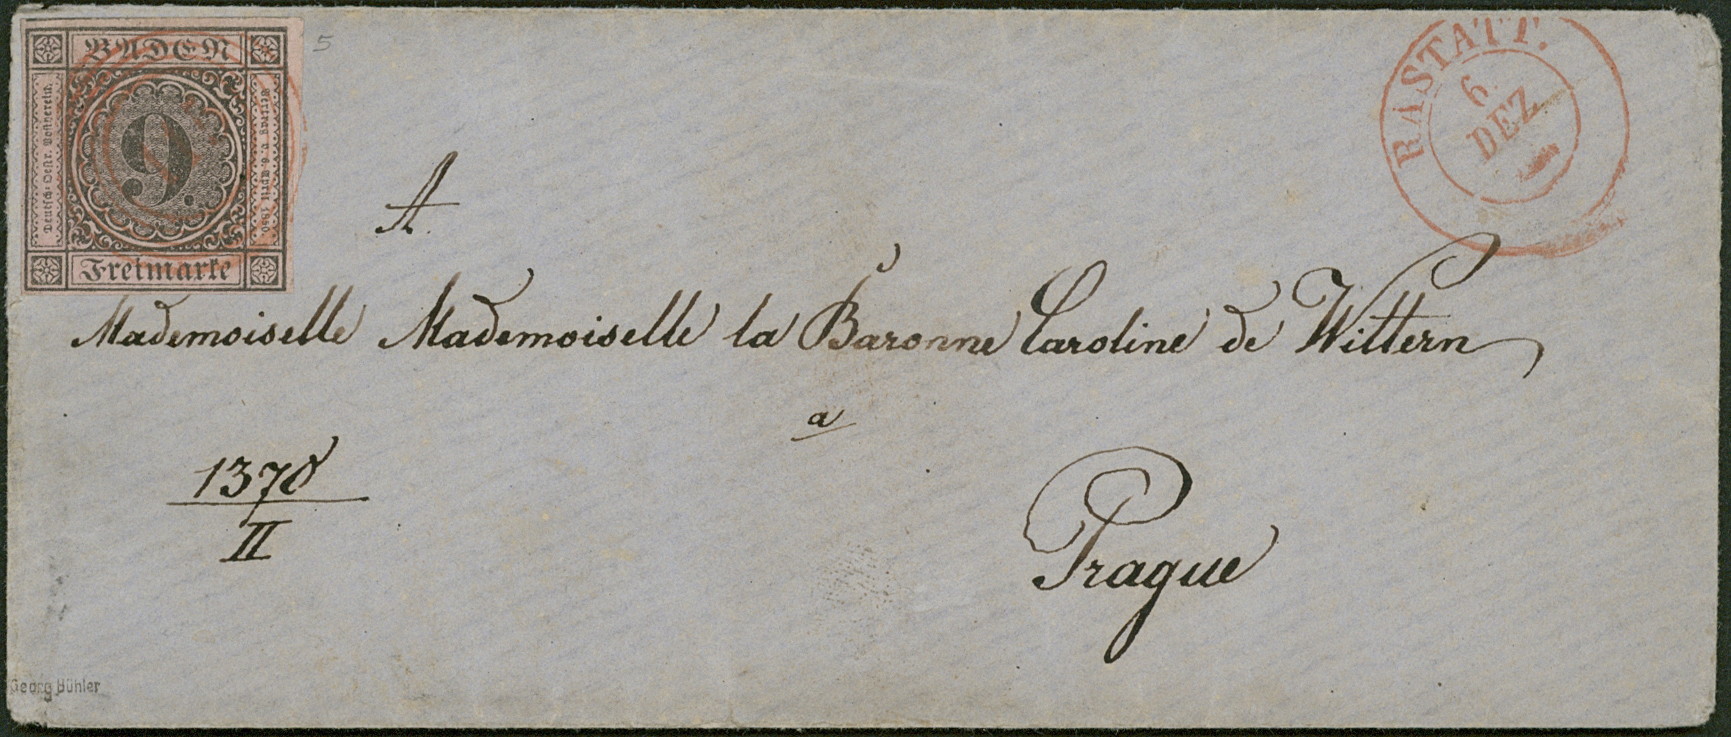 BADEN
Deutsch-Oestr. Postverein.
9.
Vertrag v. 6. April 1850.
Freimarke
5
RASTATT.
6.
DEZ
A
Mademoiselle Mademoiselle la Baronne Caroline de Wittern
a
Prague
1378
II
Georg Bühler